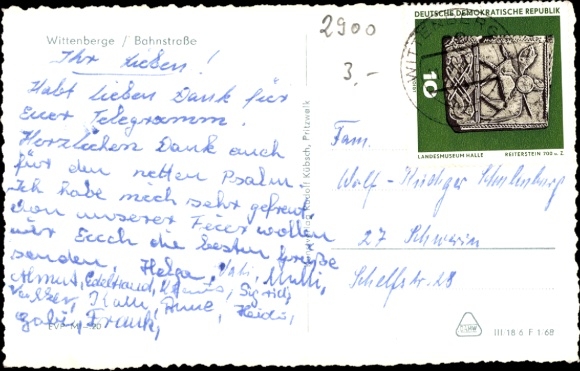 Wittenberge / Bahnstraße
Ihr Lieben!
Habt lieben Dank für
Euer Telegramm.
Herzlichen Dank auch
für den netten Psalm.
Ich habe mich sehr gefreut.
Von unserer Feier wollen
wir Euch die besten Grüße
senden, Helga, Vati, Mutti,
Almut, Edeltraud, Sigrid,
Volker, Anne, Heidi,
Gabi, Frank,
2900
3,-
DEUTSCHE DEMOKRATISCHE REPUBLIK
WITTENBERGE
10
LANDESMUSEUM HALLE REITERSTEIN 700 u. Z.
Fam.
Wolf-Rüdiger Schulenburg
27 Schwerin
Schelfstr. 28
Rudolf Kübsch, Pritzwalk
III 18 6 F 1/68